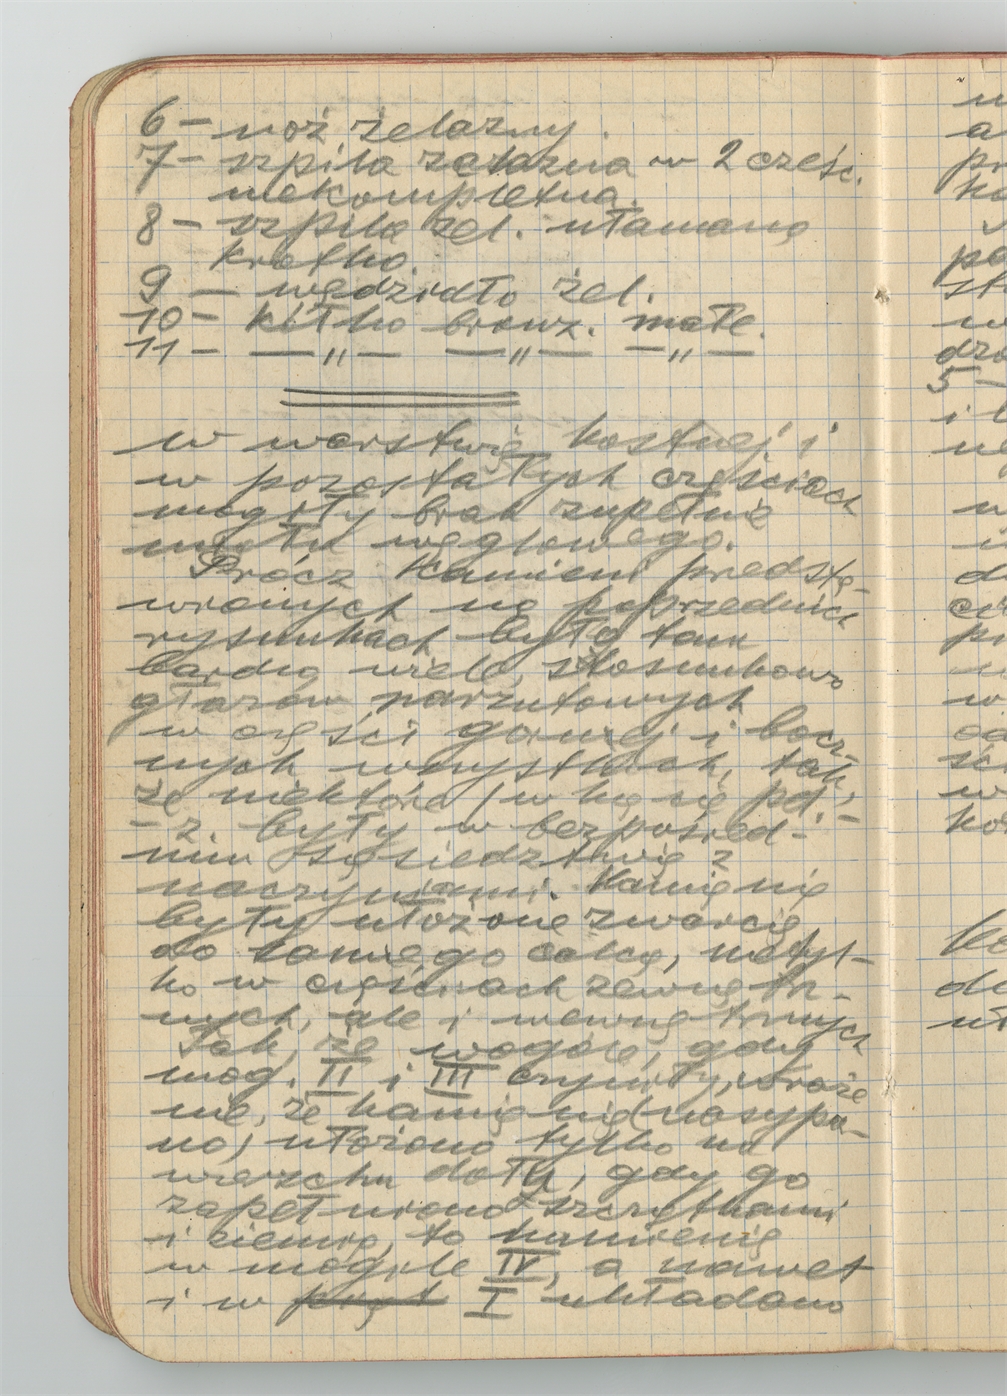 6 – noż żelazny.
7 – szpila żelazna w 2 częśc.
niekompletna.
8 – szpila żel. ułamana
krótko.
9 – wędzidło żel.
10 – kółko bronz. małe.
11 – —„— —„— —„—
w warstwie kostnej i
w pozostałych częściach
mogiły brak zupełnie
miału węglowego.
Prócz kamieni przedsta-
wionych na poprzednich
rysunkach było tam
bardzo wiele, stosunkowo
głazów narzutowych
w części górnej i bocz-
nych wszystkich, tak,
że niektóre /w części pd. –
– z. były w bezpośred-
nim sąsiedztwie z
naczyniami. Kamienie
były ułożone zwarcie
do samego calca, nietyl-
ko w częściach zewnętrz-
nych, ale i wewnętrznych
Tak, że wogóle, gdy
mog. II i III czyniły wraże
nie, że kamienie (nasypa-
no) ułożono tylko na
wierzchu dołu, gdy go
zapełniono szczątkami
i ziemią, to kamienie
w mogile IV, a nawet
i w I układano
w
a
pr
ko
st
w
dro
5 –
i
d
pr
w
w
ko
do